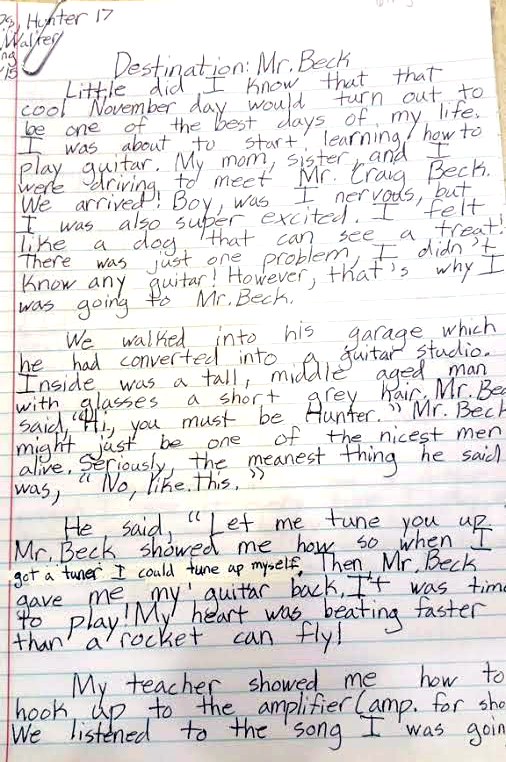 Hunter 17
Walker
Destination: Mr. Beck
Little did I know that that
cool November day would turn out to
be one of the best days of my life.
I was about to start learning how to
play guitar. My mom, sister, and I
were driving to meet Mr. Craig Beck.
We arrived! Boy, was I nervous, but
I was also super excited. I felt
like a dog that can see a treat!
There was just one problem, I didn't
know any guitar! However, that's why I
was going to Mr. Beck.
We walked into his garage which
he had converted into a guitar studio.
Inside was a tall, middle aged man
with glasses a short grey hair. Mr. Bec
said, "Hi, you must be Hunter." Mr. Beck
might just be one of the nicest men
alive. Seriously, the meanest thing he said
was, "No, like this."
He said, "Let me tune you up.
Mr. Beck showed me how so when I
got a tuner I could tune up myself. Then Mr. Beck
gave me my guitar back. It was time
to play! My heart was beating faster
than a rocket can fly!
My teacher showed me how to
hook up to the amplifier (amp. for sho
We listened to the song I was goin